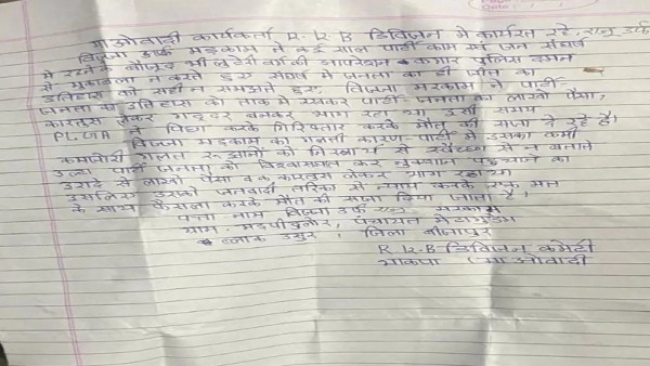 माओवादी कार्यकर्ता R.K.B डिविजन में कार्यरत रहे, राजु उर्फ
विज्जा उर्फ मड़काम ने कई साल पार्टी काम एवं जन संघर्ष
में रहने के बावजूद भी लुटेरी वर्ग की आपरेशन कगार पुलिस दमन
से मुकाबला न करते हुए संघर्ष में जनता का ही जीत का
इतिहास को सही न समझते हुए, विज्जा मरकाम ने पार्टी-
जनता का इतिहास को ताक में रखकर पार्टी-जनता का लाखों पैसा,
कारतुस लेकर गद्दार बनकर भाग रहा था उसी समय
PLGA ने पिछा करके गिरफ्तार करके मौत की सजा दे रहे है।
विज्जा मड़काम का गलती कारण पार्टी में उसका कमी
कमजोरी गलत रुझानों को निस्वार्थ से स्वेच्छा से न बताते
उल्टा पार्टी जनता को विश्वासघात कर नुक्शान पहुंचाने का
इरादे से लाखों पैसा व कारतुस लेकर भाग रहा था
इसलिए उसको जनवादी तरिका से न्याय करके एक मत
के साथ फैसला करके मौत की सजा दिया जाता है।
पत्ता- नाम विज्जा उर्फ राजु मरकाम
ग्राम- पंचायत
ब्लाक उसुर, जिला बीजापुर
R.K.B डिविजन कमेटी
भाकपा (माओवादी)